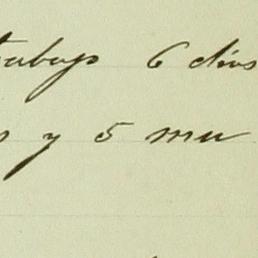 trabajo 6 dias
s y 5 mu